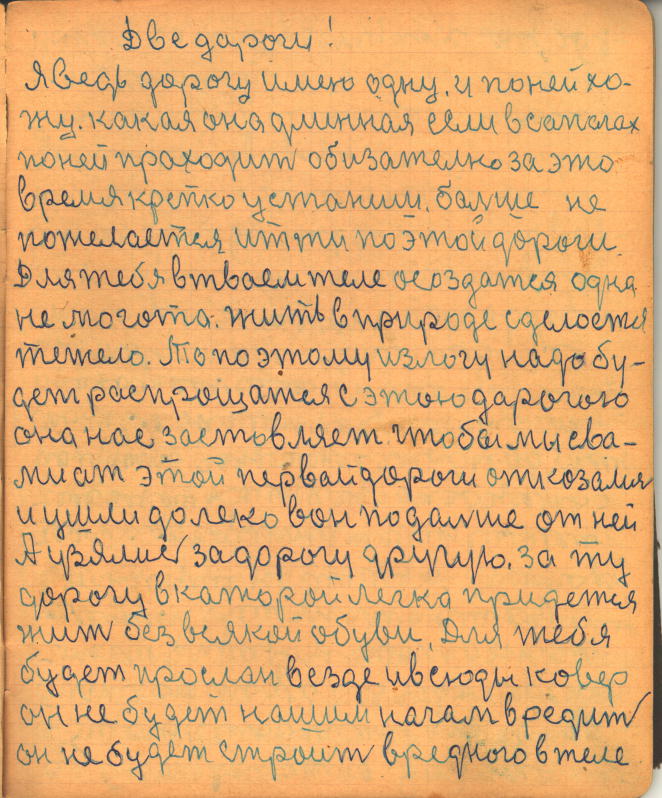 Две дароги!
Я ведь дорогу имею одну. и поней хо-
жу. какая она длинная если в сапагах
поней праходит обизателно за это
время крепко устаним. балше не
пожелается итти по этой дороги.
Для тебя в тваем теле осоздатся одна
не могота. жить в природе сделоется
тежело. То поэтому излогу надо бу-
дет распрощатся с этою дарогою
она нас заставляет. чтобы мы сва-
ми ат этой первай дороги отказалис
и ушли долеко вон подалше от ней
А узялис за дорогу другую. за ту
дорогу в каторой легка придется
жит без всякой обуви. Для тебя
будет прослан везде и всюды ковер
он не будет нашим начам вредит
он не будет строит вредного в теле